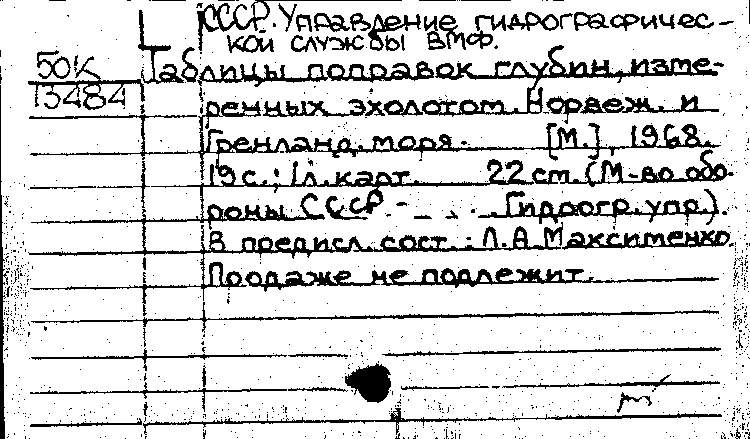 СССР. Управление гидрографичес-
кой службы ВМФ.
50К Таблицы поправок глубин, изме-
13484 ренных эхолотом. Норвеж. и
Гренланд. моря. [М.], 1968.
19 с.; 1 л. карт. 22 см. (М-во обо-
роны СССР - Гидрогр. упр.).
В предисл. сост.: Л.А Максименко.
Продаже не подлежит.